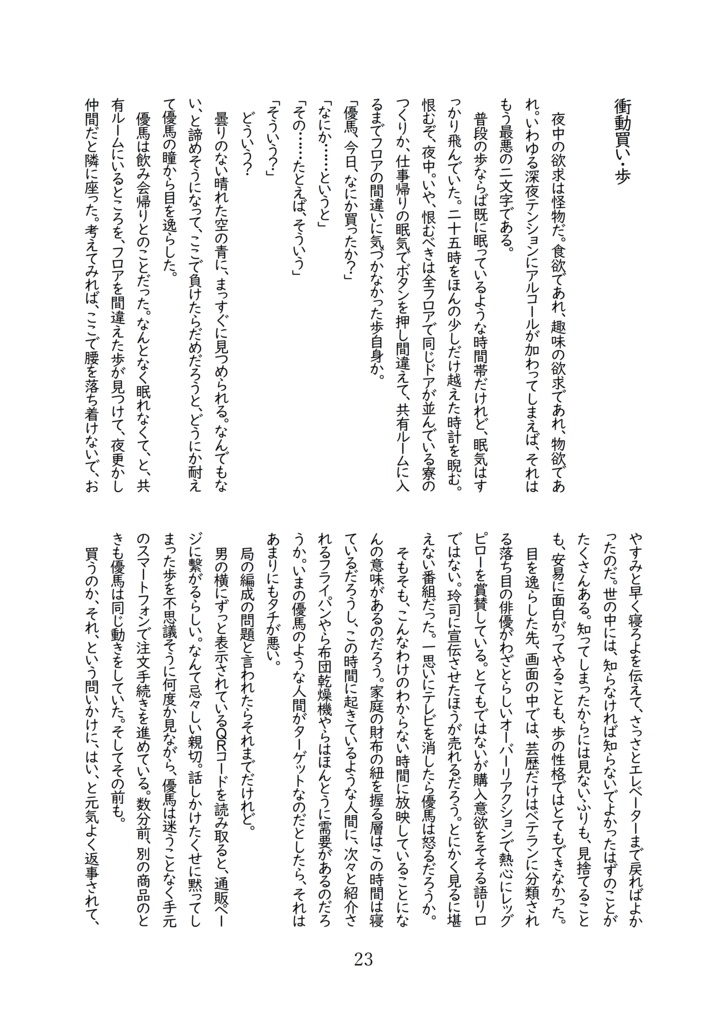 衝動買い・歩
夜中の欲求は怪物だ。食欲であれ、趣味の欲求であれ、物欲であ
れ。いわゆる深夜テンションにアルコールが加わってしまえば、それは
もう最悪の二文字である。
普段の歩ならば既に眠っているような時間帯だけれど、眠気はす
っかり飛んでいた。二十五時をほんの少しだけ越えた時計を睨む。
恨むぞ、夜中。いや、恨むべきは全フロアで同じドアが並んでいる寮の
つくりか、仕事帰りの眠気でボタンを押し間違えて、共有ルームに入
るまでフロアの間違いに気づかなかった歩自身か。
「優馬、今日、なにか買ったか？」
「なにか……というと」
「その……たとえば、そういう」
「そういう？」
どういう？
曇りのない晴れた空の青に、まっすぐに見つめられる。なんでもな
い、と諦めそうになって、ここで負けたらだめだろうと、どうにか耐え
て優馬の瞳から目を逸らした。
優馬は飲み会帰りとのことだった。なんとなく眠れなくて、と、共
有ルームにいるところを、フロアを間違えた歩が見つけて、夜更かし
仲間だと隣に座った。考えてみれば、ここで腰を落ち着けないで、お
やすみと早く寝ろよを伝えて、さっさとエレベーターまで戻ればよか
ったのだ。世の中には、知らなければ知らないでよかったはずのことが
たくさんある。知ってしまったからには見ないふりも、見捨てること
も、安易に面白がってやることも、歩の性格ではとてもできなかった。
目を逸らした先、画面の中では、芸歴だけはベテランに分類され
る落ち目の俳優がわざとらしいオーバーリアクションで熱心にレッグ
ピローを賞賛している。とてもではないが購入意欲をそそる語り口
ではない。玲司に宣伝させたほうが売れるだろう。とにかく見るに堪
えない番組だった。一思いにテレビを消したら優馬は怒るだろうか。
そもそも、こんなわけのわからない時間に放映していることにな
んの意味があるのだろう。家庭の財布の紐を握る層はこの時間は寝
ているだろうし、この時間に起きているような人間に、次々と紹介さ
れるフライパンやら布団乾燥機やらはほんとうに需要があるのだろ
うか。いまの優馬のような人間がターゲットなのだとしたら、それは
あまりにもタチが悪い。
局の編成の問題と言われたらそれまでだけれど。
男の横にずっと表示されているQRコードを読み取ると、通販ペー
ジに繋がるらしい。なんて忌々しい親切。話しかけたくせに黙ってし
まった歩を不思議そうに何度か見ながら、優馬は迷うことなく手元
のスマートフォンで注文手続きを進めている。数分前、別の商品のと
きも優馬は同じ動きをしていた。そしてその前も。
買うのか、それ、という問いかけに、はい、と元気よく返事されて、
23